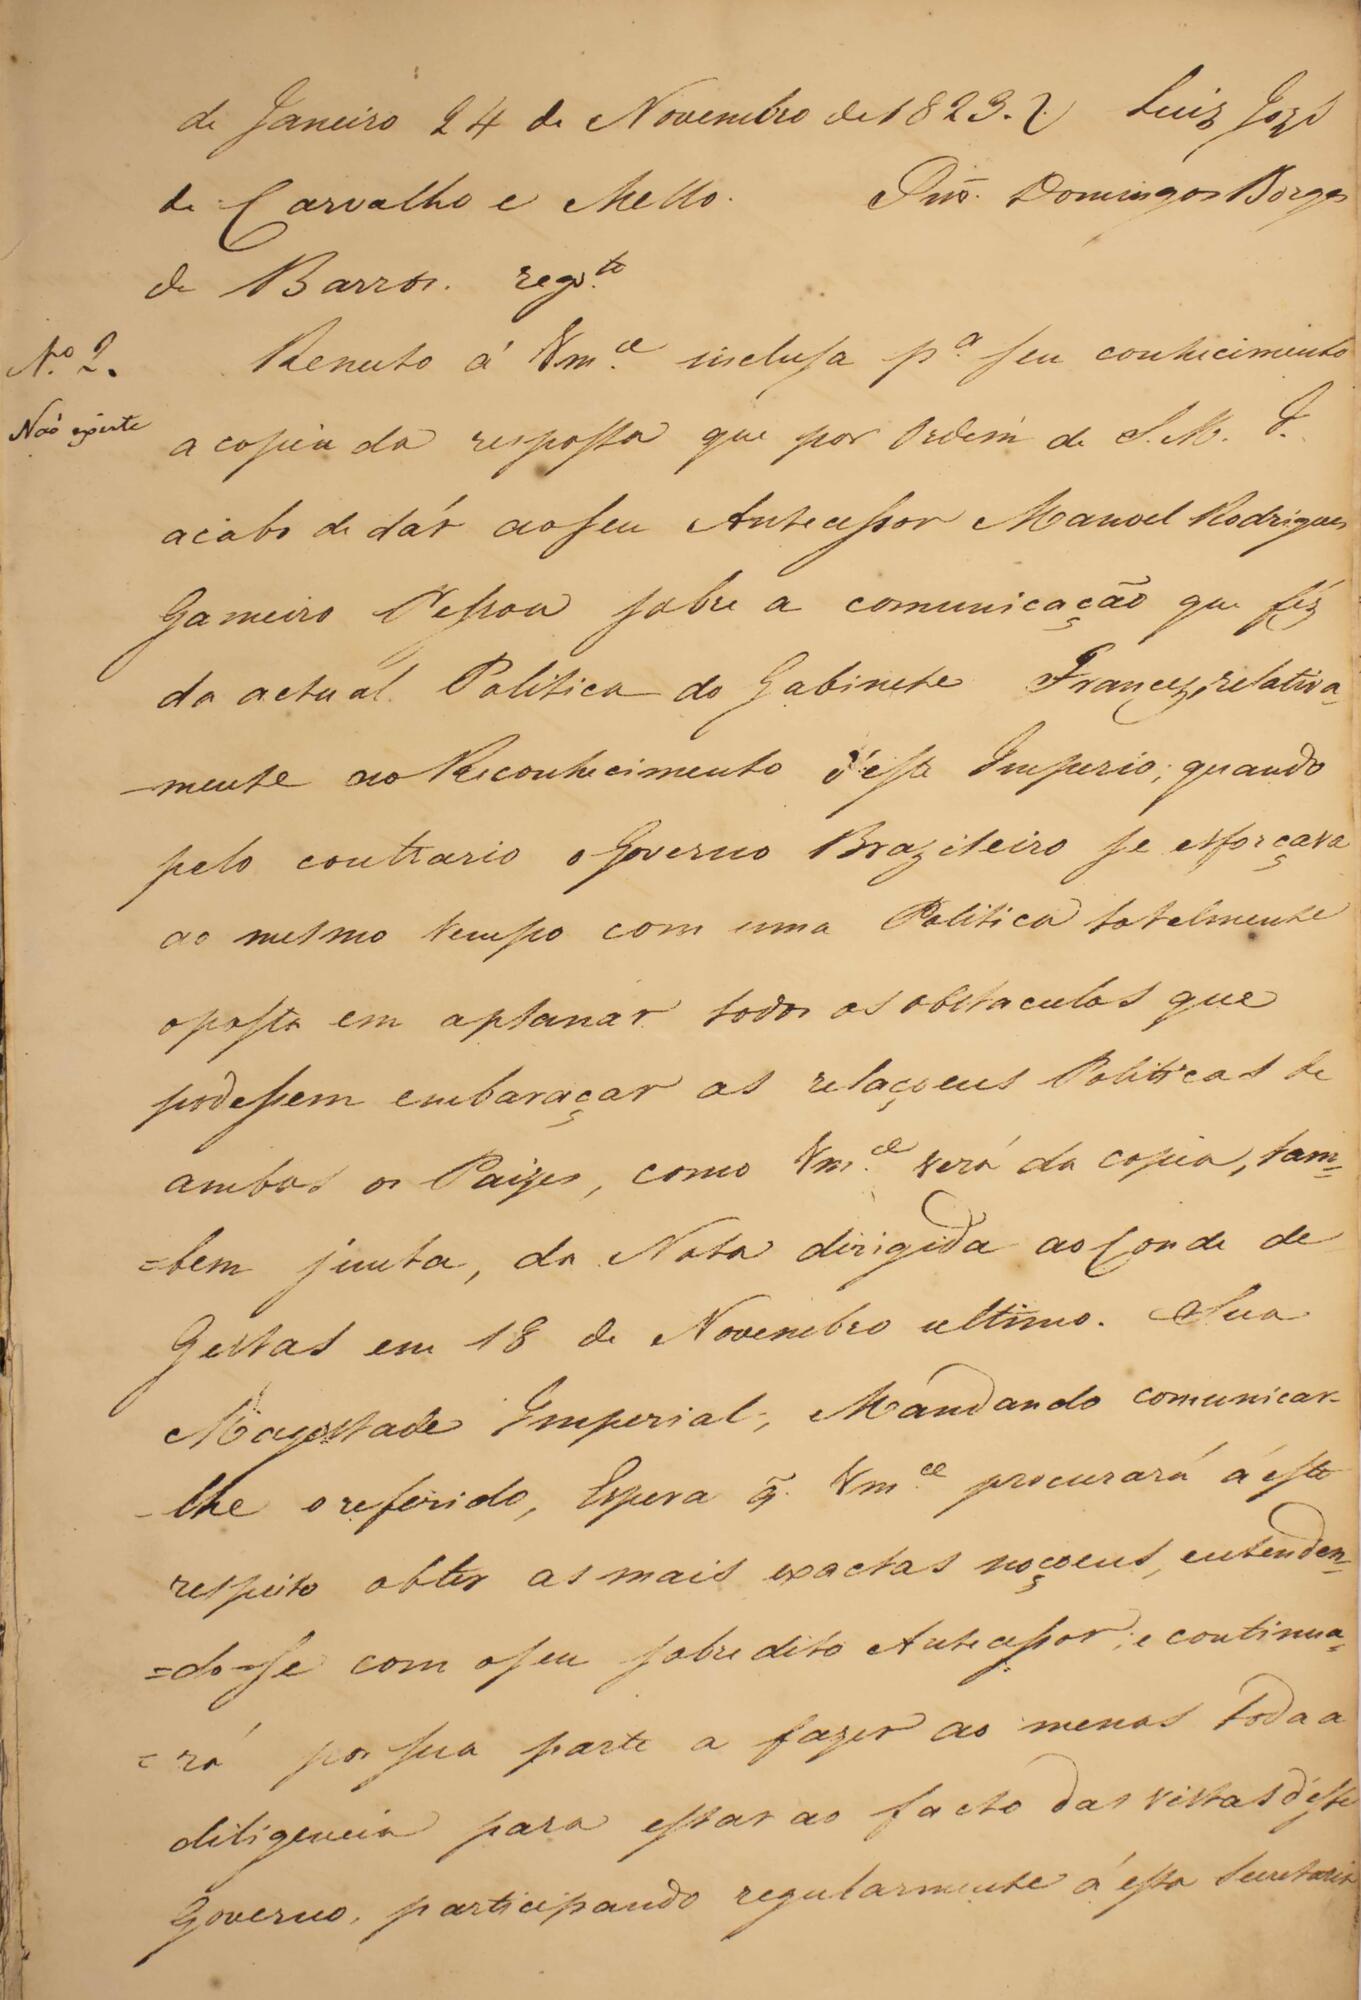 de Janeiro 24 de Novembro de 1823. Luiz José
de Carvalho e Mello. Snr. Domingos Borges
de Barros. regº.to
Nº. 2. Remeto á Vm.ce inclusa p.a seu conhecimento
Não existe
a copia da resposta que por Ordem de S. M. I.
acabo de dár ao seu Antecessor Manoel Rodrigues
Gameiro Pessoa sobre a comunicação que féz
da actual Politica do Gabinete Francez, relativa-
-mente ao Reconhecimento d'este Imperio; quando
pelo contrario o Governo Brazileiro se esforçava
ao mesmo tempo com uma Politica totalmente
oposta em aplanar todos os obstaculos que
podessem embaraçar as relaçoens Politicas de
ambos os Paizes, como Vm.ce verá da copia, tam=
=bem junta, da Nota dirigida ao Conde de
Gestas em 18 de Novembro ultimo. Sua
Magestade Imperial, Mandando comunicar-
-lhe o referido, Espera q̃. Vm.ce procurará á este
respeito obter as mais exactas noçoens, entenden=
=do-se com o seu sobredito Antecessor; e continua=
=rá por sua parte a fazer ao menos toda a
diligencia para estar ao facto das vistas d'esse
Governo, participando regularmente á esta Secretaria